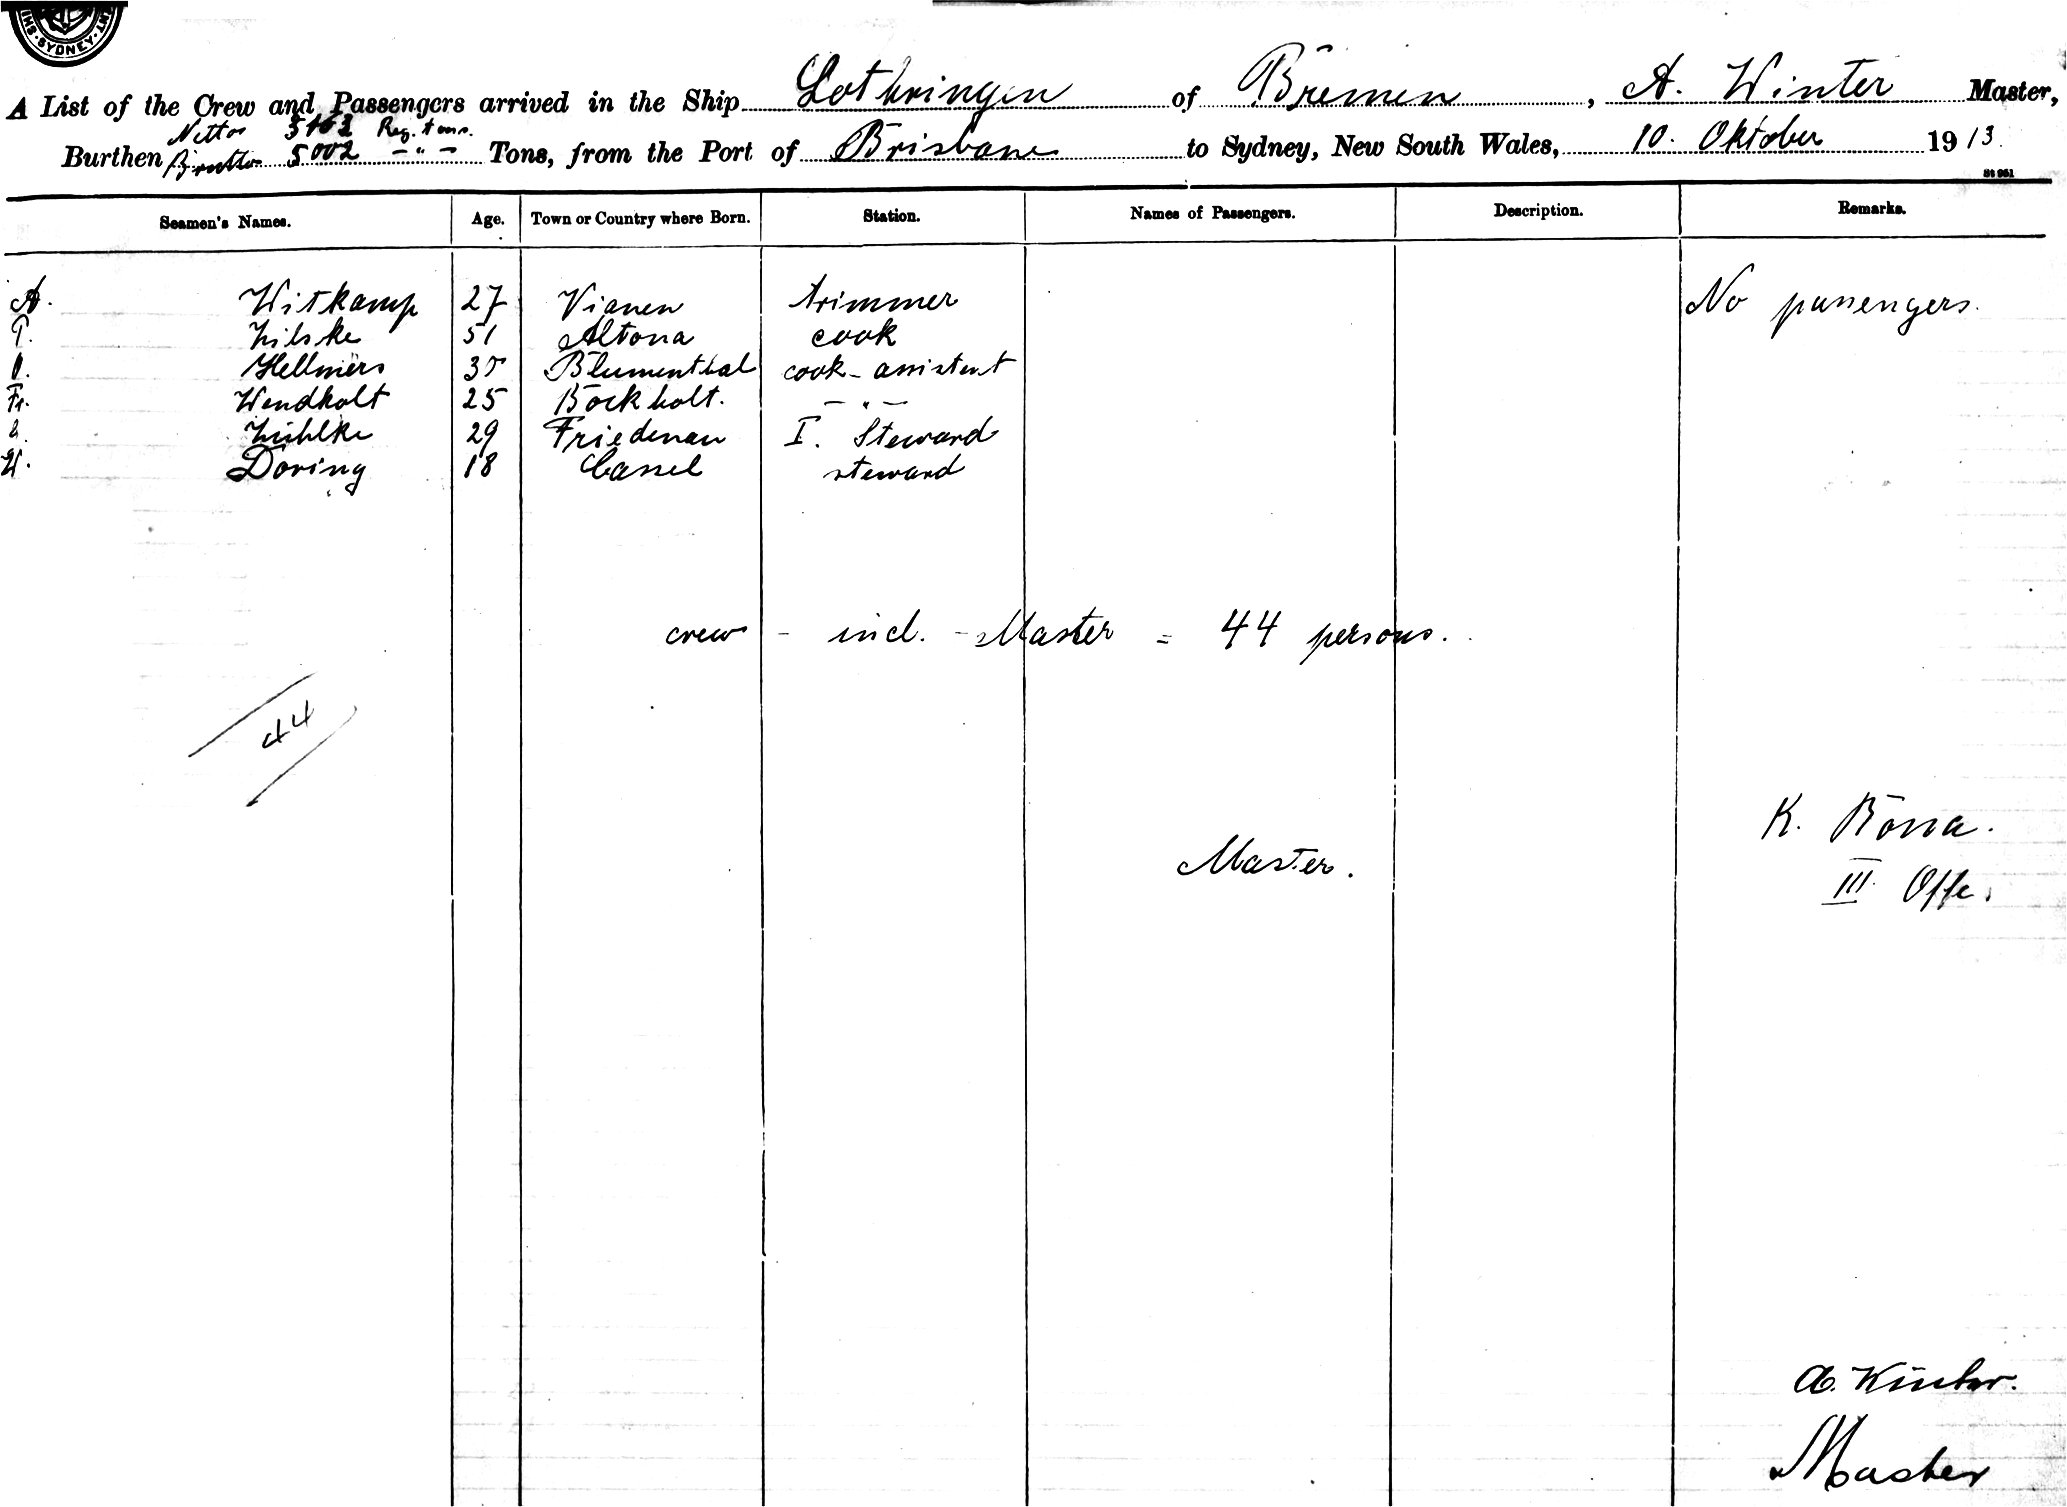 SYDNEY
A List of the Crew and Passengers arrived in the Ship Lothringen of Bremen, A. Winter Master,
Netto 3162 Reg. tons.
Burthen Brutto 5002 - " - Tons, from the Port of Brisbane to Sydney, New South Wales, 10. Oktober 1913.
St 951
Seamen's Names. Age. Town or Country where Born. Station. Names of Passengers. Description. Remarks.
A. Witkamp 27 Vianen trimmer No passengers.
P. Zilske 51 Altona cook
Hellmers 35 Blumenthal cook-assistent
Fr. Wendholt 25 Bockholt. - " -
Lühlke 29 Friedenau I. Steward
W. Döring 18 Cassel steward
crew - incl. - Master = 44 persons.
44
K.
Master.
III Offc.
A. Winter.
Master